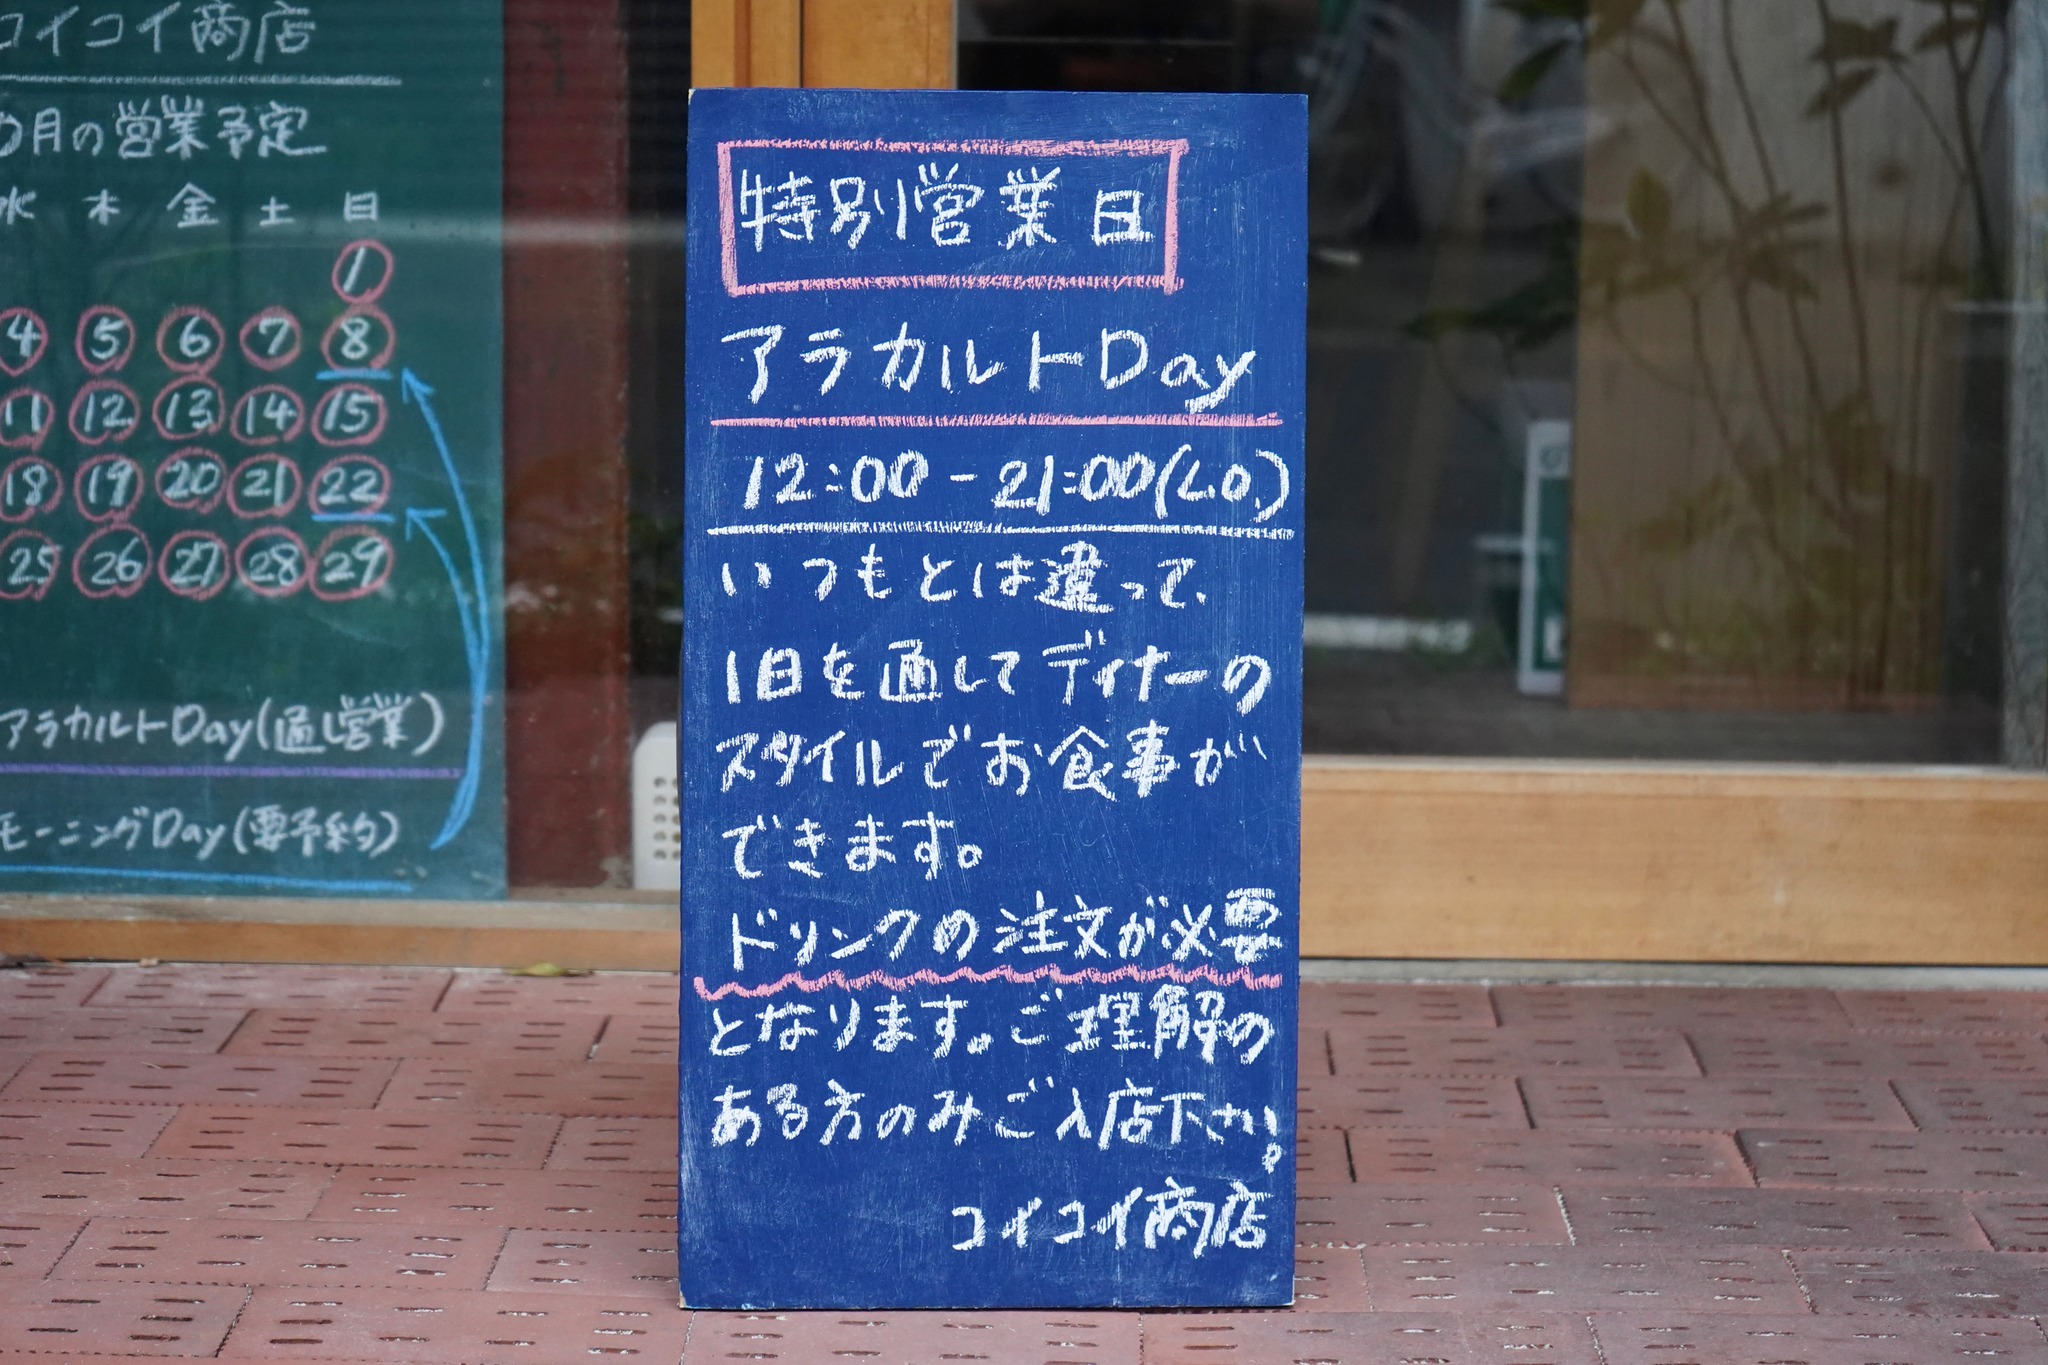 コイコイ商店
月の営業予定
水 木 金 土 日
1
4 5 6 7 8
11 12 13 14 15
18 19 20 21 22
25 26 27 28 29
アラカルトDay(通し営業)
モーニングDay(要予約)
特別営業日
アラカルトDay
12:00-21:00(L.O.)
いつもとは違って、
1日を通してディナーの
スタイルでお食事が
できます。
ドリンクの注文が必要
となります。ご理解の
ある方のみご入店下さい。
コイコイ商店